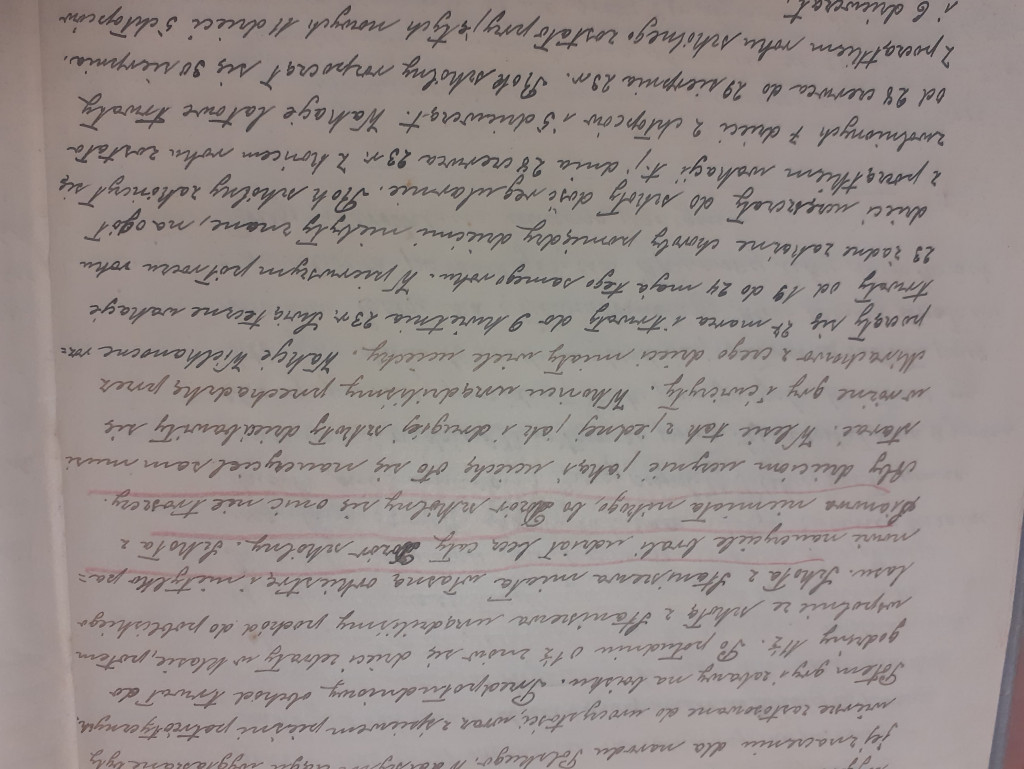 jej znaczeniu dla narodu Polskiego. W dalszym ciągu wygłaszane były
wiersze zastosowane do uroczystości, wraz z śpiewem pieśni patrjotycznych.
Potem gry i zabawy na boisku. Przedpołudniowy obchod trwał do
godziny 11½. Po południu o 1½ znów się dzieci zebrały w klasie, potem
wspolnie ze szkołą z Staniszewa urządziliśmy pochod do pobliskiego
lasu. Szkoła z Staniszewa miała własną orkiestrę i nietylko pa=
nowie nauczyciele brali udział lecz cały Dozór szkolny. Szkoła z
niemiała nikogo, bo Dozór szkolny się o nic nie troszczy.
Aby dzieciom uczynić jakąś uciechę oto się nauczyciel sam musi
starać. W lesie tak z jednej jak i drugiej szkoły dzieci bawiły się
w różne gry i ćwiczyły. W końcu urządziliśmy przechadzkę przez
z czego dzieci miały wiele uciechy. Wakacje Wielkanocne roz=
poczęły się 28 marca i trwały do 9 kwietnia 23 r. Świąteczne wakacje
trwały od 19 do 24 maja tego samego roku. W pierwszym półroczu roku
23 żadne zakaźne choroby pomiędzy dziećmi niebyły znane, na ogół
dzieci uczęszczały do szkoły dość regularnie. Rok szkolny zakończył się
z początkiem wakacji t.j. dnia 28 czerwca 23 r. Z końcem roku została
zwolnionych 7 dzieci 2 chłopców i 5 dziewcząt. Wakacje latowe trwały
od 28 czerwca do 29 sierpnia 23 r. Rok szkolny rozpoczął się 30 sierpnia.
Z początkiem roku szkolnego zostało przyjętych nowych 11 dzieci 5 chłopców
i 6 dziewcząt.